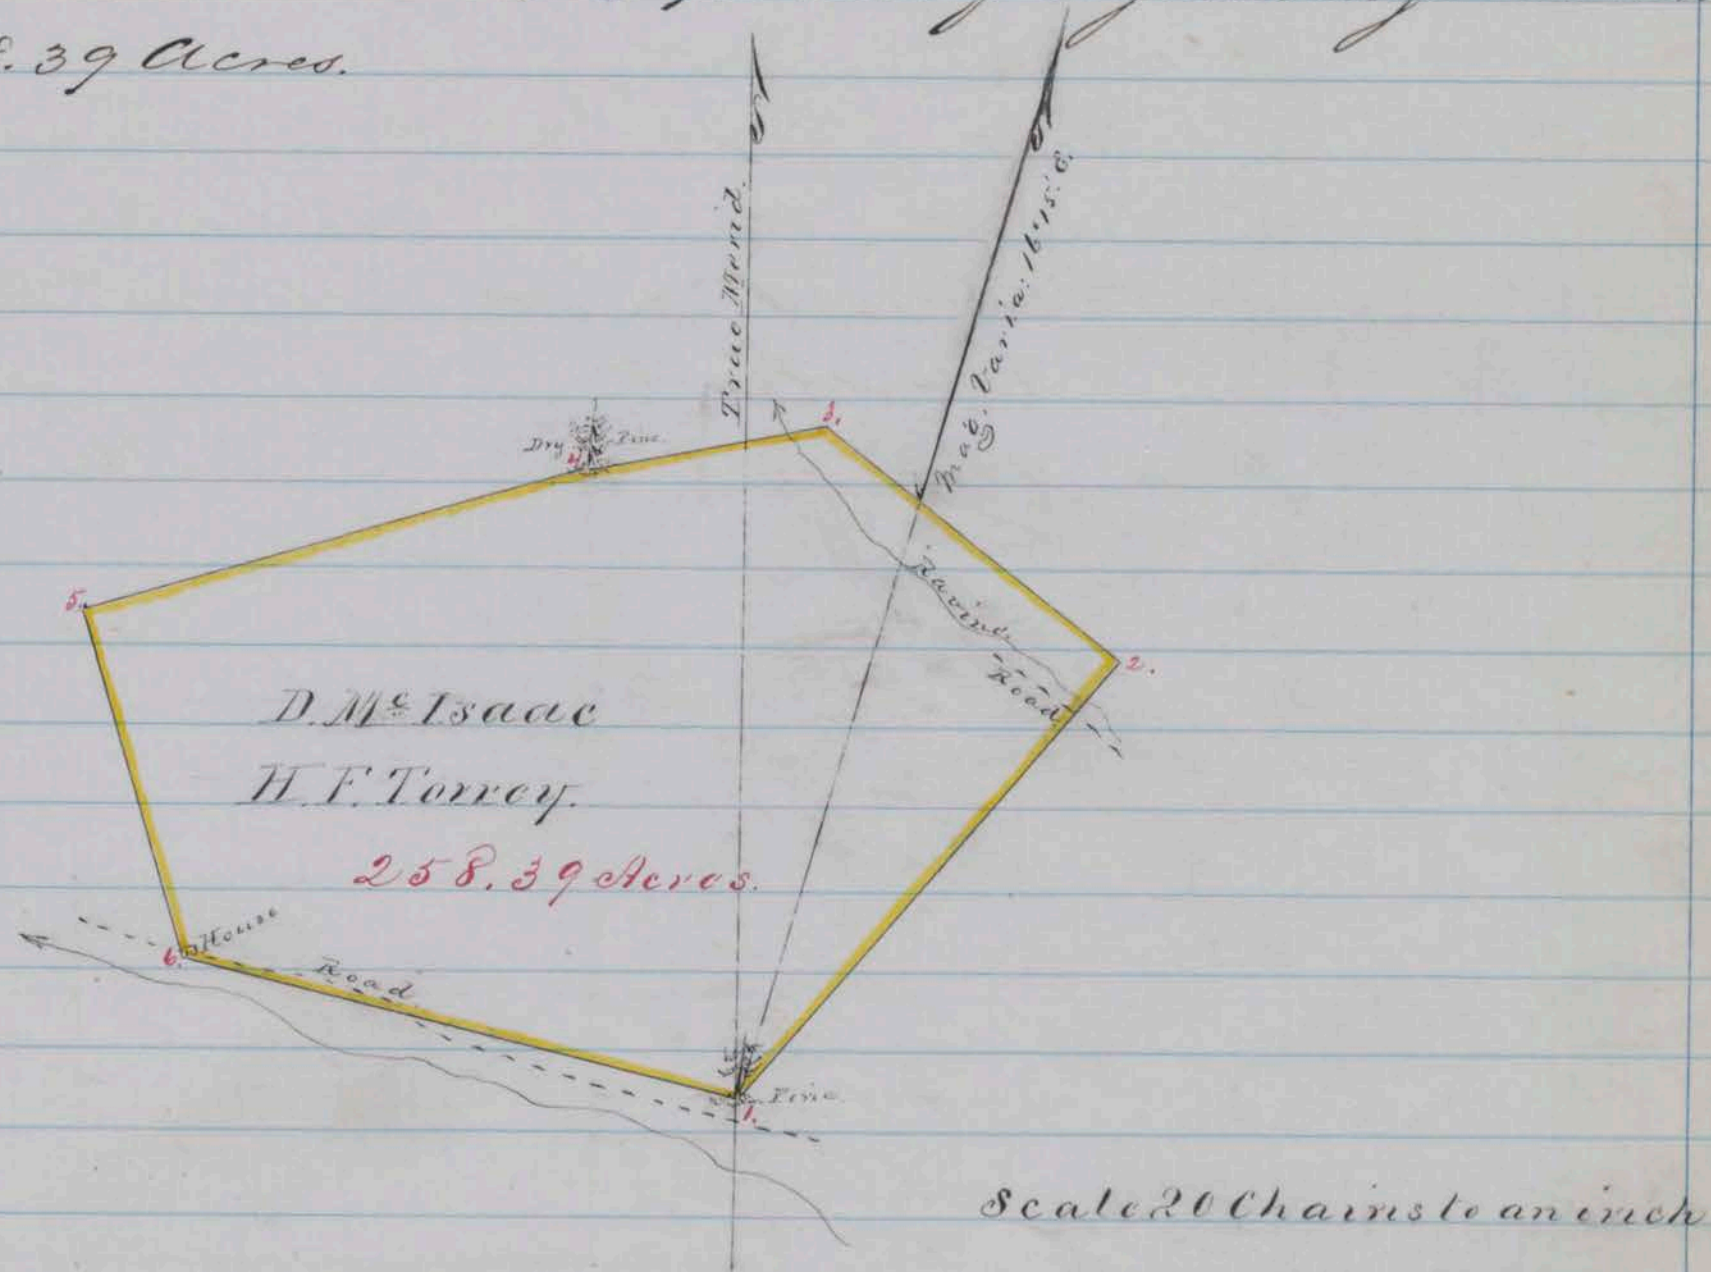 . 39 Acres.
True Merid.
Mag. Varia: 16° 15' E.
3.
Dry Pine
4
Ravine
2.
Road
5.
D. Mc Isaac
H. F. Torrey.
258.39 Acres.
House
6.
Road
Pine
1.
Scale 20 Chains to an inch